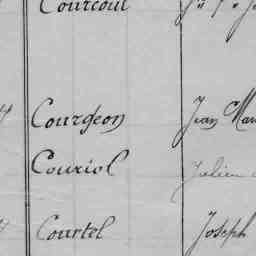 Courcoul
Courgeon Jean
Couriol Julien
Courtel Joseph